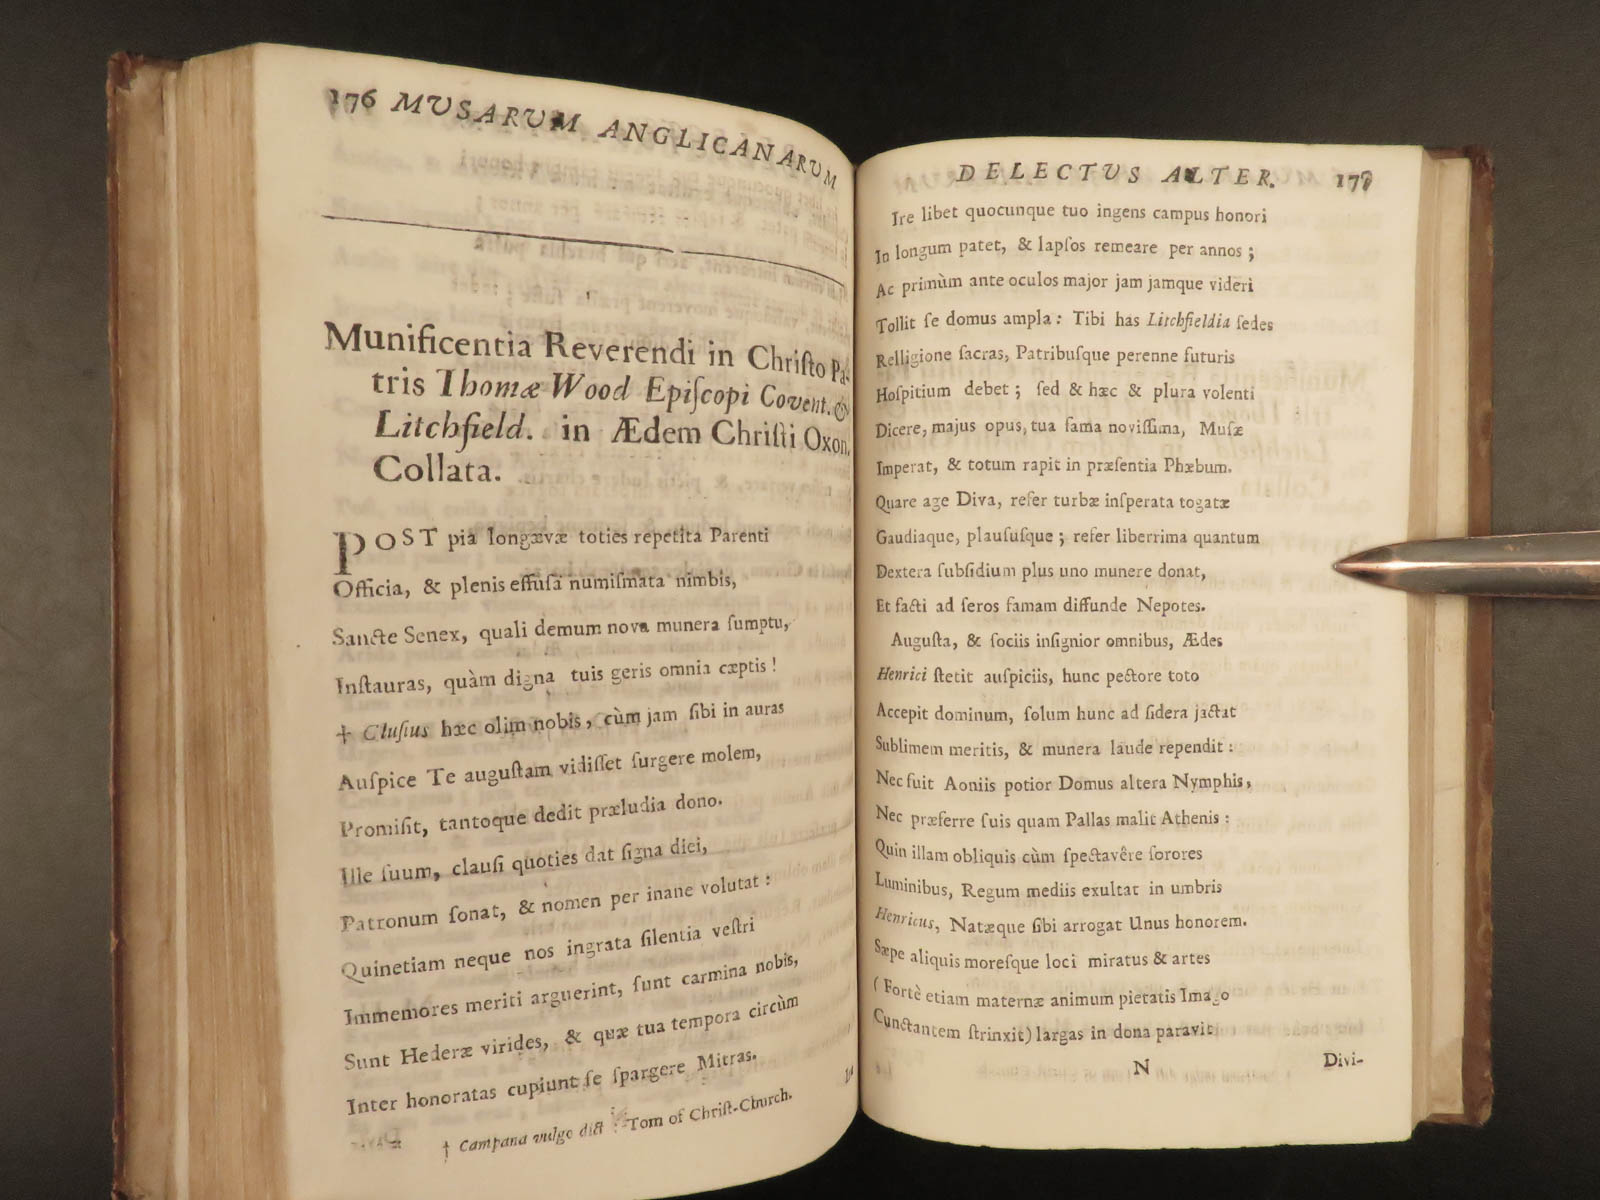 176 MUSARUM ANGLICANARUM
Munificentia Reverendi in Chriſto Pa-
tris Thomæ Wood Epiſcopi Covent. &
Litchfield. in Ædem Chriſti Oxon.
Collata.
POST pia longævæ toties repetita Parenti
Officia, & plenis effuſa numiſmata nimbis,
Sancte Senex, quali demum nova munera ſumptu,
Inſtauras, quàm digna tuis geris omnia cæptis!
† Cluſius hæc olim nobis, cùm jam ſibi in auras
Auſpice Te auguſtam vidiſſet ſurgere molem,
Promiſit, tantoque dedit præludia dono.
Ille ſuum, clauſi quoties dat ſigna diei,
Patronum ſonat, & nomen per inane volutat:
Quinetiam neque nos ingrata ſilentia veſtri
Immemores meriti arguerint, ſunt carmina nobis,
Sunt Hederæ virides, & quæ tua tempora circùm
Inter honoratas cupiunt ſe ſpargere Mitras.
† Campana vulgo dict Tom of Chriſt-Church.
DELECTUS ALTER. 177
Ire libet quocunque tuo ingens campus honori
In longum patet, & lapſos remeare per annos;
Ac primùm ante oculos major jam jamque videri
Tollit ſe domus ampla: Tibi has Litchfieldia ſedes
Relligione ſacras, Patribuſque perenne futuris
Hoſpitium debet; ſed & hæc & plura volenti
Dicere, majus opus, tua fama noviſſima, Muſæ
Imperat, & totum rapit in præſentia Phæbum.
Quare age Diva, refer turbæ inſperata togatæ
Gaudiaque, plauſuſque; refer liberrima quantum
Dextera ſubſidium plus uno munere donat,
Et facti ad ſeros famam diffunde Nepotes.
Auguſta, & ſociis inſignior omnibus, Ædes
Henrici ſtetit auſpiciis, hunc pectore toto
Accepit dominum, ſolum hunc ad ſidera jactat
Sublimem meritis, & munera laude rependit:
Nec fuit Aoniis potior Domus altera Nymphis,
Nec præferre ſuis quam Pallas malit Athenis:
Quin illam obliquis cùm ſpectavêre ſorores
Luminibus, Regum mediis exultat in umbris
Henricus, Natæque ſibi arrogat Unus honorem.
Sæpe aliquis moreſque loci miratus & artes
(Fortè etiam maternæ animum pietatis Imago
Cunctantem ſtrinxit) largas in dona paravit
N Divi-